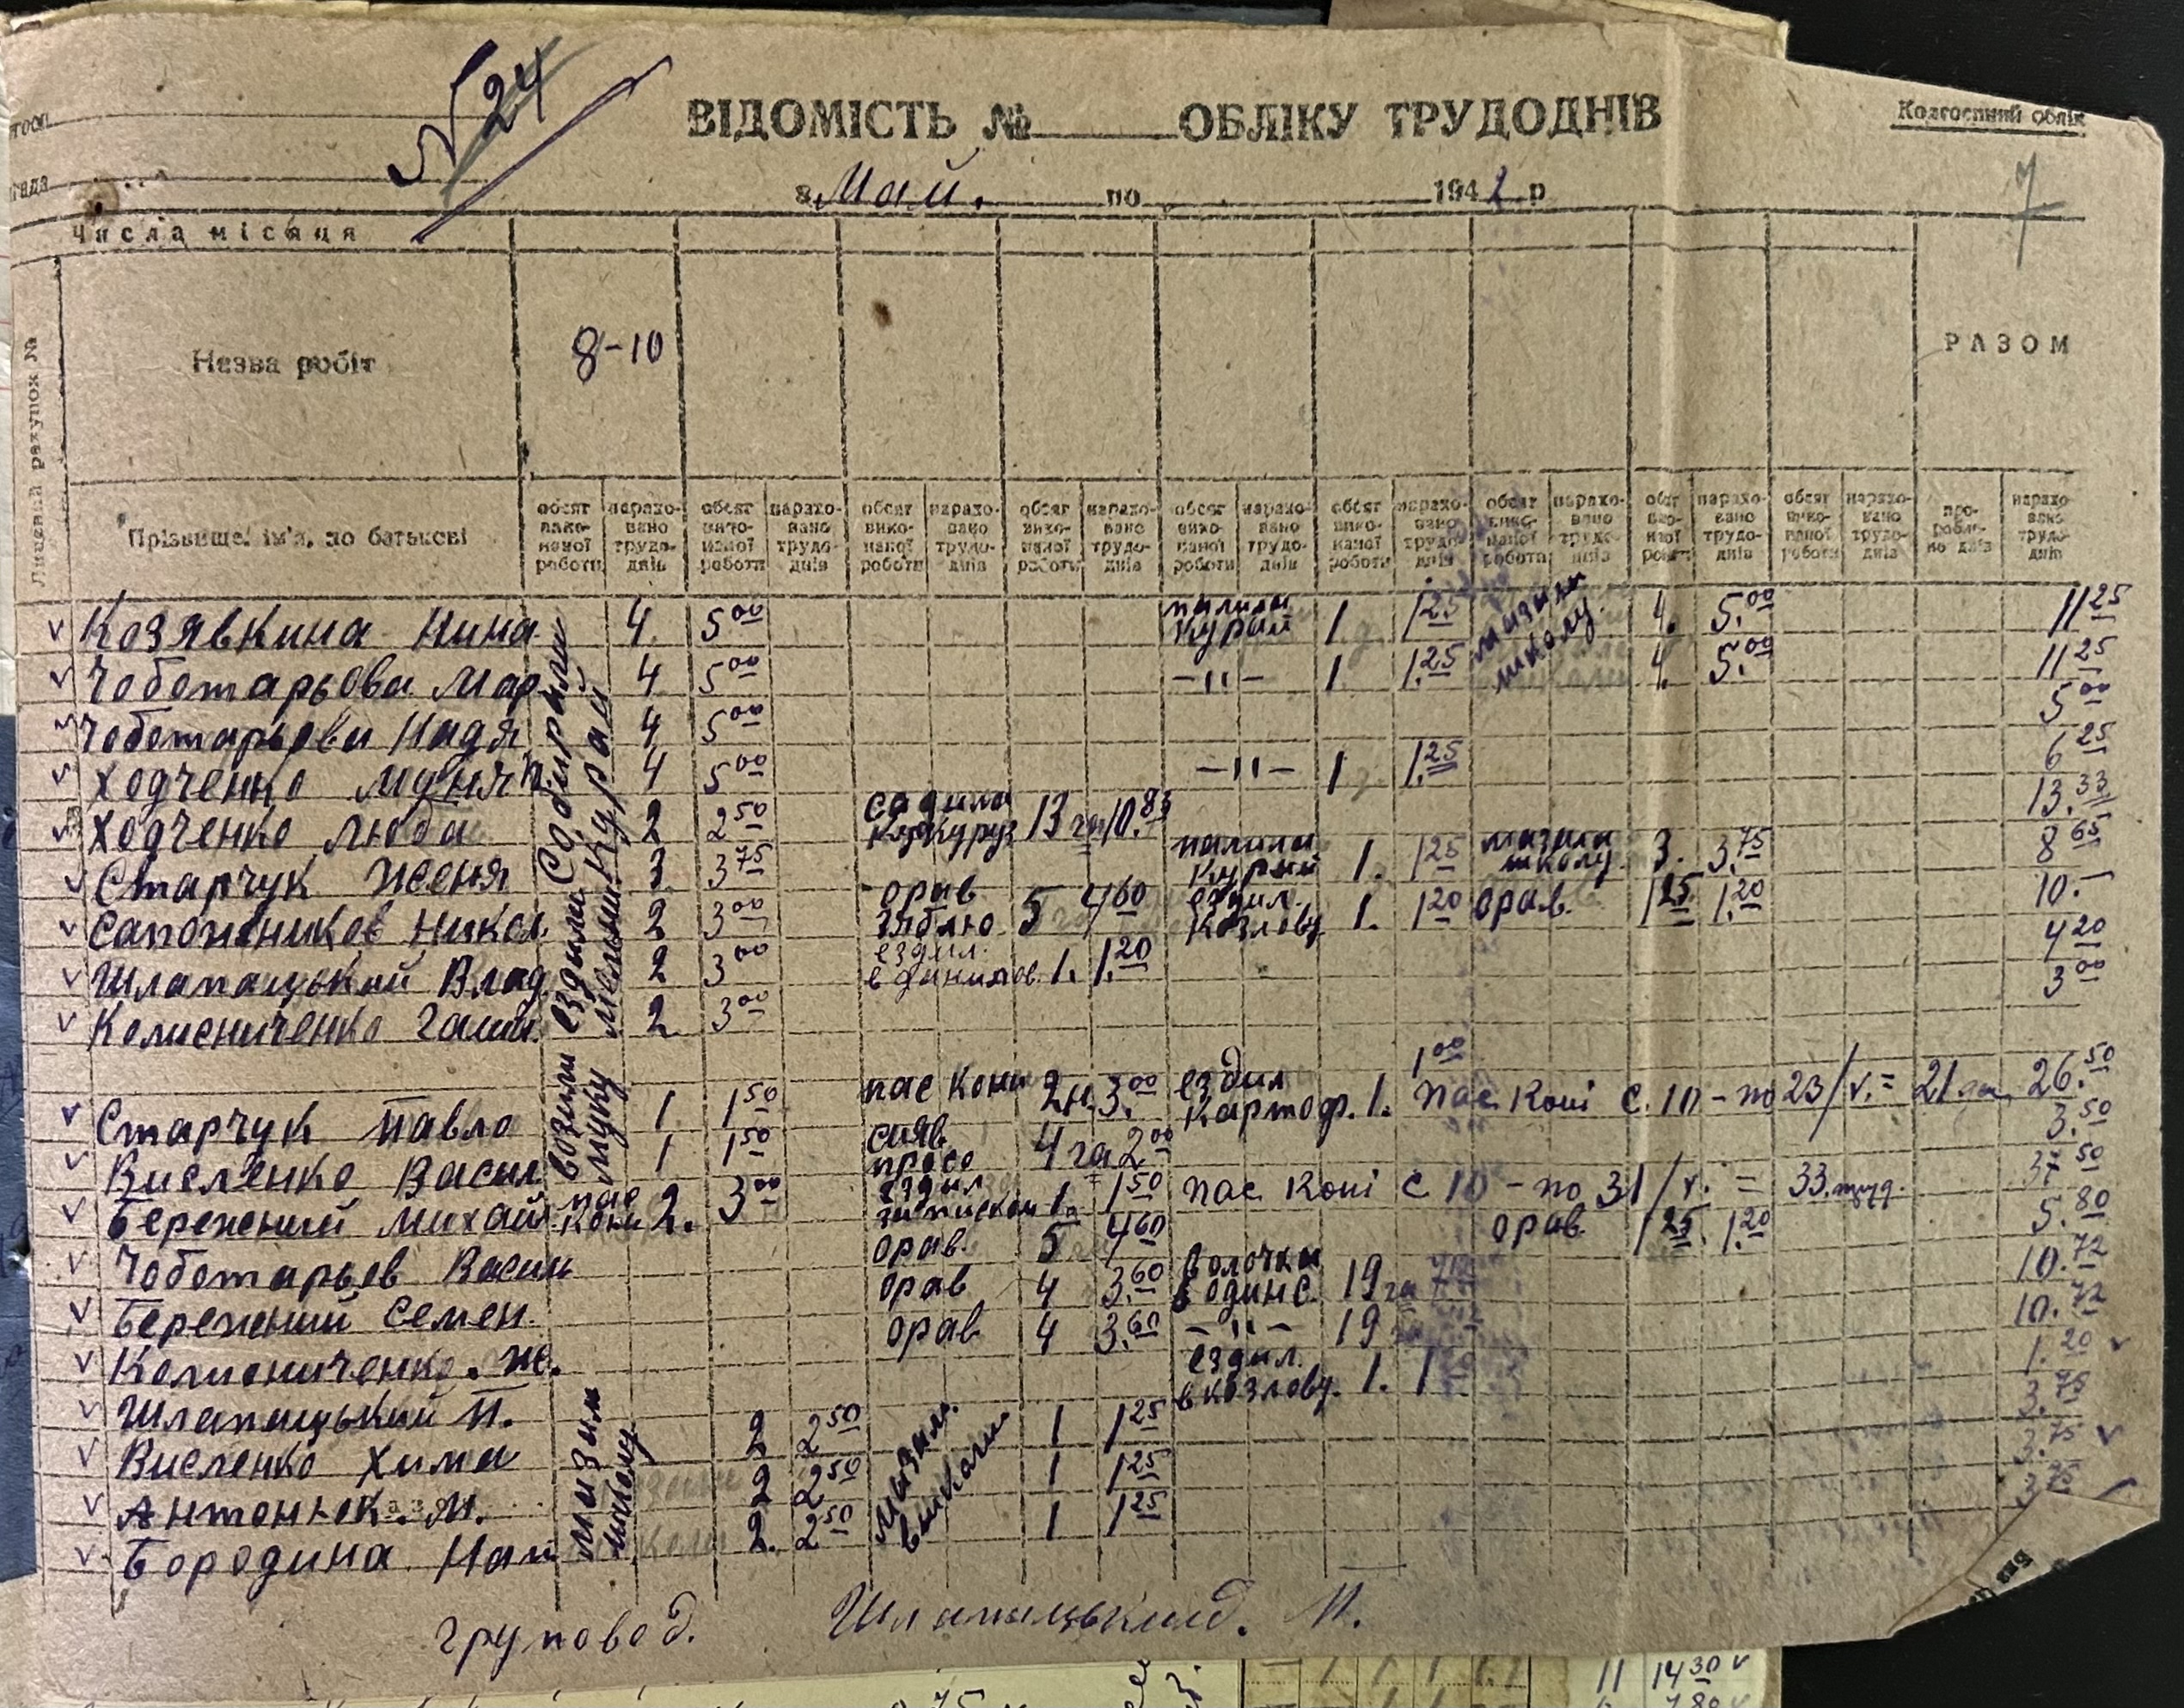 № 24
ВІДОМІСТЬ № ОБЛІКУ ТРУДОДНІВ
Колгоспний облік
з Май. по 1942 р
7
Числа місяця
Лицевий рахунок №
Назва робіт
8-10
РАЗОМ
Прізвище, ім'я, по батькові
обсяг виконаної роботи нараховано трудоднів обсяг виконаної роботи нараховано трудоднів обсяг виконаної роботи нараховано трудоднів обсяг виконаної роботи нараховано трудоднів обсяг виконаної роботи нараховано трудоднів обсяг виконаної роботи нараховано трудоднів обсяг виконаної роботи нараховано трудоднів обсяг виконаної роботи нараховано трудоднів обсяг виконаної роботи нараховано трудоднів про- роблено днів нараховано трудоднів
собирали курай
v Козявкина Нина 4 5 00 палила курай 1 1 25 мазали школу 4. 5. 00 11 25
v Чоботарьова Мар 4 5 00 -"- 1 1. 25 4. 5. 00 11 25
v Чоботарьова Надя 4 5 00 5 00
v Ходченко 4 5 00 -"- 1 1. 25 6 25
v Ходченко Люба 2 2 50 садила кукуруз 13 га 10. 83 13. 33
v Старчук Женя 3 3 75 палила курай 1. 1 25 мазала школу 3. 3. 75 8 65
ездили
v Сапожников Никол. 2 3 00 орав зяблю 5 4 60 ездил. Козлову 1. 1 20 орав. 1 25. 1. 20 10. -
v Шлапацький Влад 2 3 00 ездил. 1. 1. 20 4 20
v Колисниченко 2 3 00 3 00
возили муку
v Старчук Павло 1 1 50 пас кони 2 н. 3. 00 ездил картоф. 1. 1 00 пас коні с. 10 - по 23/v. = 21 26. 50
v Кисленко Васил 1 1 50 сияв просо 4 га 2 00 3. 50
v Бережний Михайл пас кони 2. 3 00 ездил 1. 1 50 пас коні с 10 - по 31/v. = 33. 37 50
v Чоботарьов Васил орав. 5 4 60 орав 1 25. 1. 20 5. 80
v Бережний Семен. орав 4 3. 60 волочка 19 га 10. 72
v Колисниченко. Ж. орав 4 3. 60 -"- 19 10. 72
v Шлапацький П. ездил. в козлову. 1. 1 20 1. 20 v
мазали школу мазали
v Кисленко Хима 2 2 50 1 1 25 3. 75
v Антонюк. М. 2 2 50 1 1 25 3. 75 v
v Бородина Нат 2. 2 50 1 1 25 3 75
груповод. Шлапацький. М.
11 14 30 v